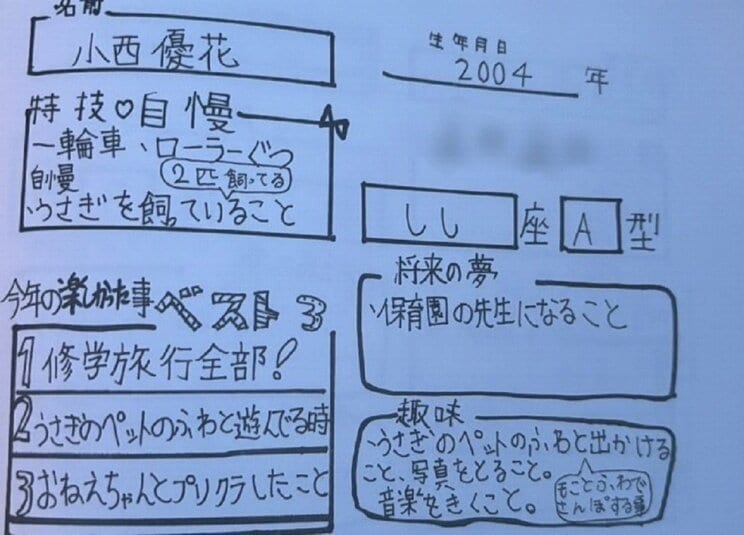 名前
小西優花
生年月日
2004年
特技♡自慢
一輪車、ローラーぐつ
自慢
2匹飼ってる
うさぎを飼っていること
しし座 A型
将来の夢
保育園の先生になること
今年の楽しかった事
ベスト3
1 修学旅行全部!
2 うさぎのペットのふわと遊んでる時
3 おねえちゃんとプリクラしたこと
趣味
うさぎのペットのふわと出かける
こと、写真をとること。
音楽をきくこと。
もことふわで
さんぽする事